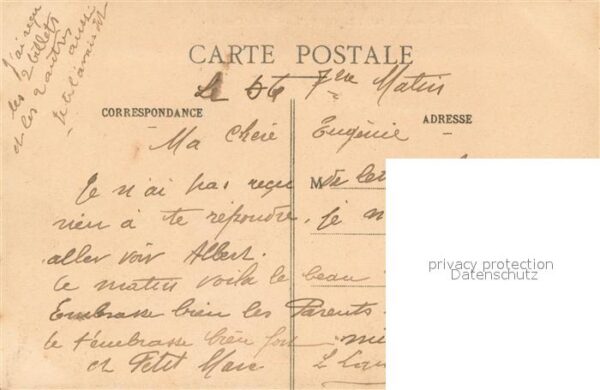 J'ai reçu
les 2 billets
et les 2 autres
aussi
je te l'avais dit
CARTE POSTALE
Le 7ere Matin
CORRESPONDANCE
ADRESSE
Ma Chere Eugénie
Je n'ai pas reçu de
M
rien à te répondre, je
aller voir Albert.
ce matin voila le beau
Embrasse bien les Parents
je t'embrasse bien fort
et Petit Marc
privacy protection
Datenschutz